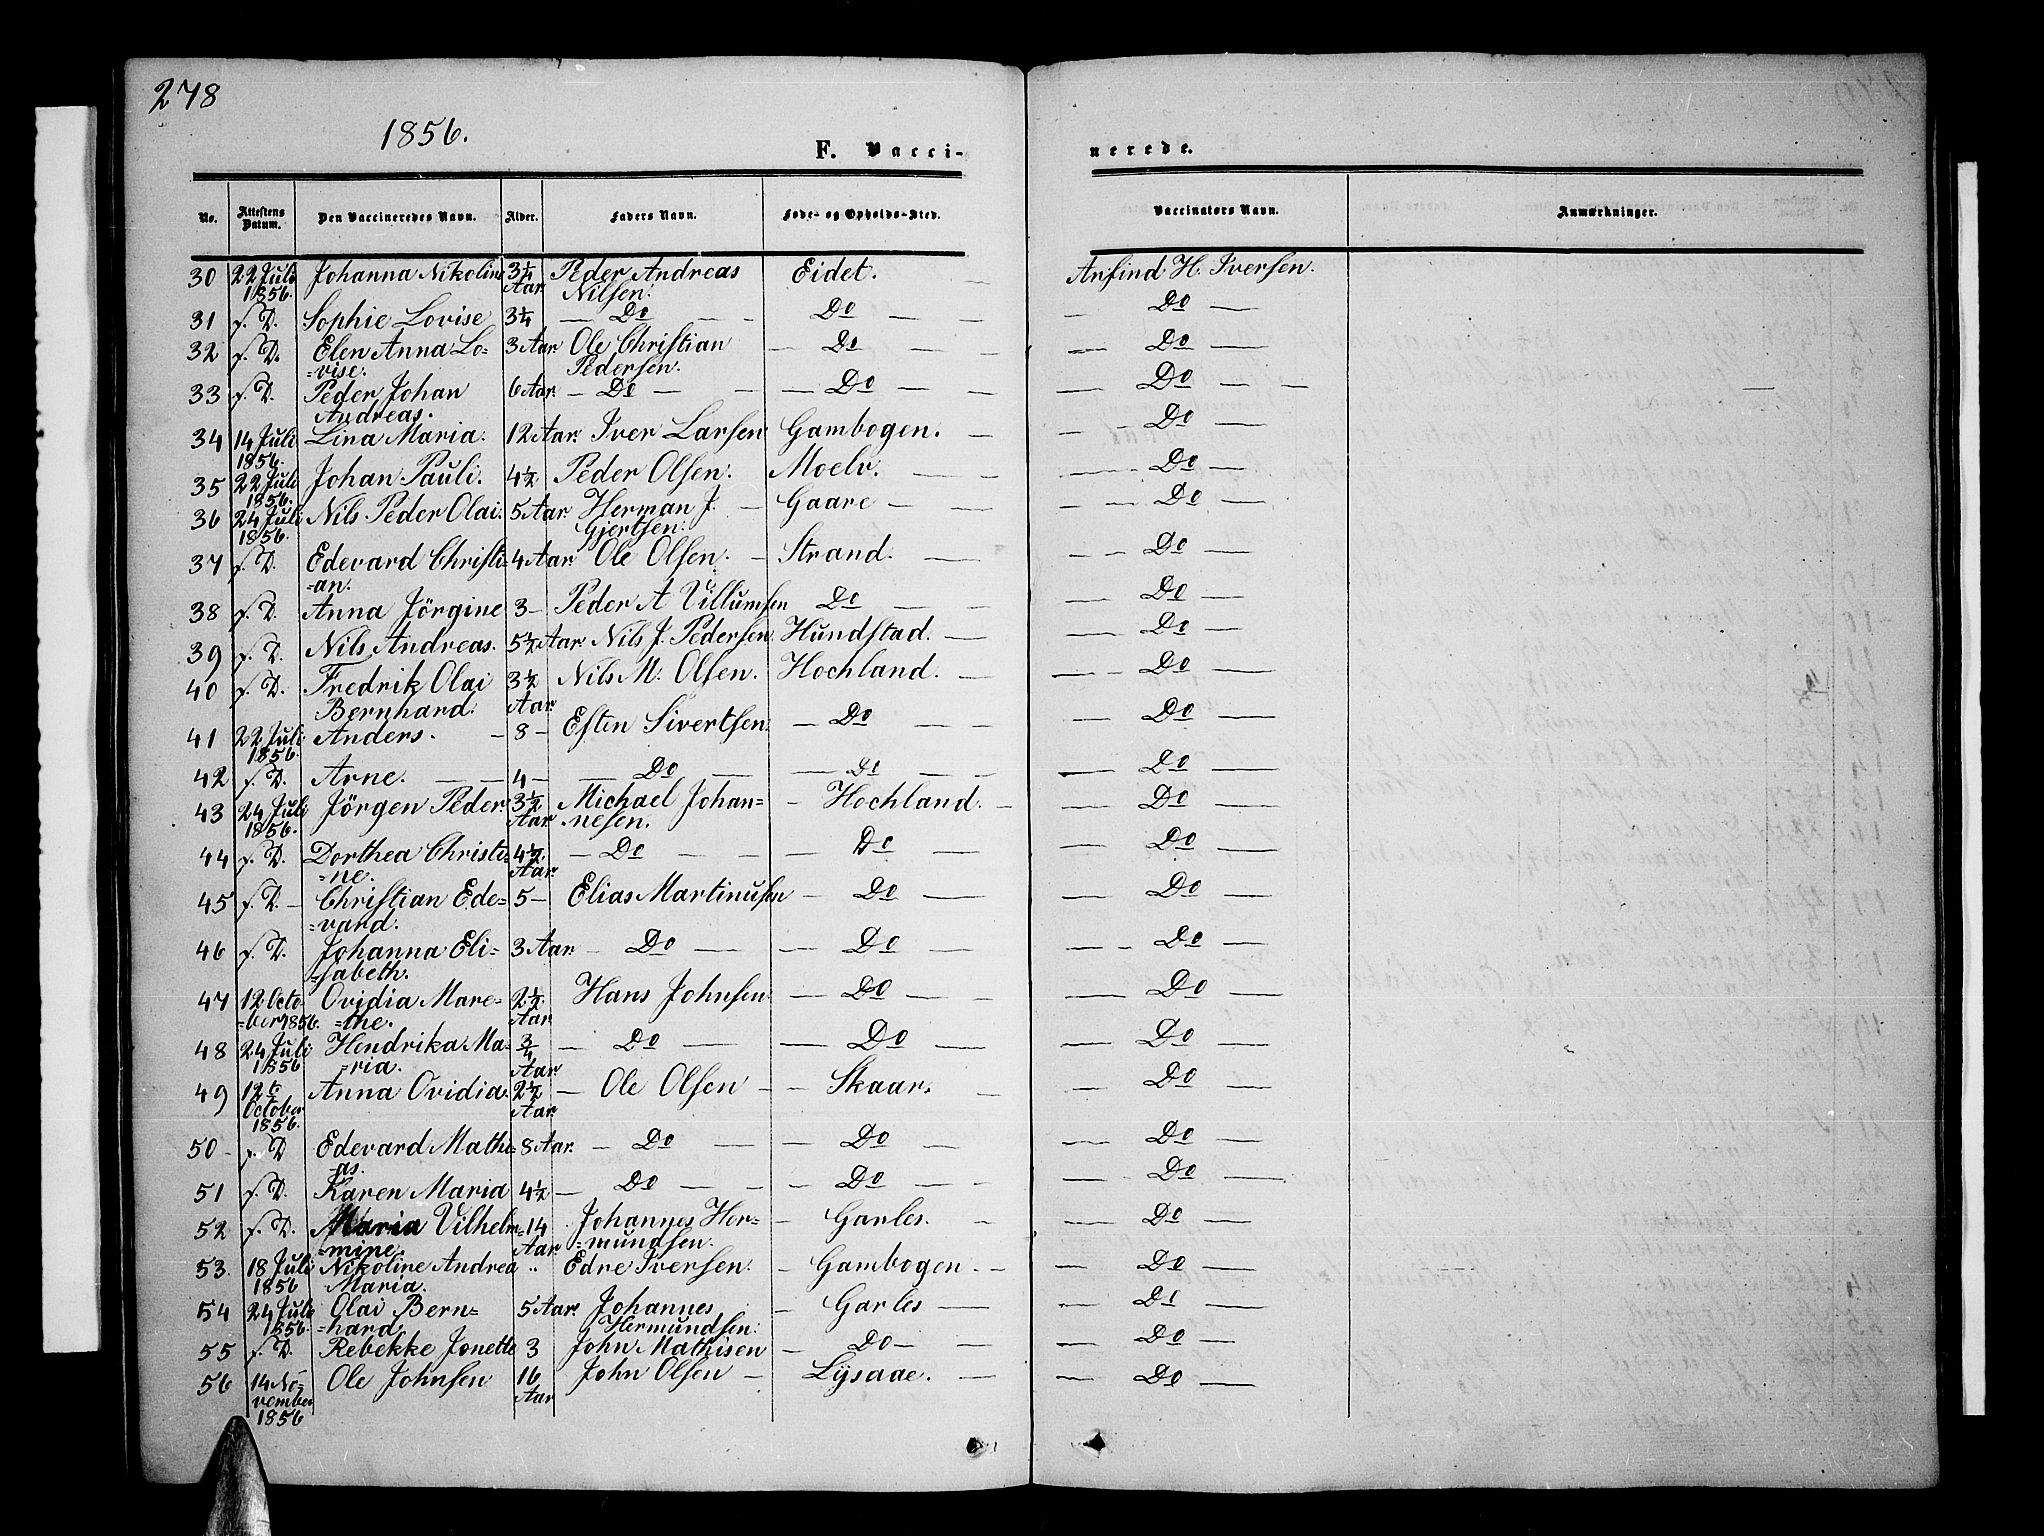 278
1856.
F. Vacci-
nerede.
No. Attestens Datum. Den Vaccineredes Navn. Alder. Faders Navn. Føde- og Opholds-Sted. Vaccinators Navn. Anmærkninger.
30 22 Juli 1856. Johanna Nikoline 3 1/4 Aar Peder Andreas Nilsen. Eidet. Arfind H. Iversen.
31 f. D. Sophie Lovise 3 1/4 — Do — — Do — — Do —
32 f. D. Elen Anna Lo= =vise. 3 Aar. Ole Christian Pedersen. — Do — — Do —
33 f. D. Peder Johan Andreas. 6 Aar. — Do — — Do — — Do —
34 14 Juli 1856. Lina Maria. 12 Aar. Iver Larsen Gambogen. — — Do —
35 22 Juli 1856. Johan Pauli. 4 1/2 Peder Olsen. Moelv. — — Do —
36 24 Juli 1856. Nils Peder Olai. 5 Aar. Herman J. Gjertsen. — Gaare — — Do —
37 f. D. Edevard Christi= =an. 4 Aar. Ole Olsen. — Strand. — — Do —
38 f. D. Anna Jörgine 3 — Peder A Villumsen Do — — Do —
39 f. D. Nils Andreas. 5 1/2 Aar. Nils J. Pedersen. Hundstad. — — Do —
40 f. D. Fredrik Olai Bernhard. 3 1/2 Aar. Nils M. Olsen. Hochland. — — Do —
41 22 Juli 1856. Anders. — 8 — Esten Sivertsen. — Do — — Do —
42 f. D. Arne. — — 4 — — Do — — Do — — Do —
43 24 Juli 1856. Jörgen Peder. 3 1/2 Aar Michael Johan= =nesen. — Hochland. — — Do —
44 f. D. Dorthea Christi= =ne. 4 1/2 Aar. — Do — — Do — — Do —
45 f. D. — Christian Ede= =vard. 5 — Elias Martinusen — Do — — Do —
46 f. D. Johanna Eli= =sabeth. 3 Aar. — Do — — Do — — Do —
47 12 Octo= =ber 1856. Ovidia Mare= =the. 2 1/2 Aar Hans Johnsen — Do — — Do —
48 24 Juli 1856 Hendrika Ma= =ria. 3/4 Aar — Do — — Do — — Do —
49 12te October 1856. Anna Ovidia. 2 1/2 Aar. — Ole Olsen — — Skaar. — — Do —
50 — f. D Edevard Mathi= =as. 8 Aar. — Do — — Do — — Do —
51 f. D. Karen Maria 4 1/2 — Do — — Do — — Do —
52 f. D. Maria Vilhelm= =mine. 14 Aar. Johannes Her= =mundsen. — Garles. — — Do —
53. 18 Juli 1856 Nikoline Andrea Maria. " Edre Iversen. — Gambogen. — — Do —
54 24 Juli 1856. Olai Bern= =hard. 5 Aar. Johannes Hermundsen. — Garles — — Do —
55 f. D. Rebekke Jonette 3 John Mathisen — Do — — Do —
56 14 No= vember 1856 Ole Johnsen 16 Aar John Olsen — Lysaae. — — Do —